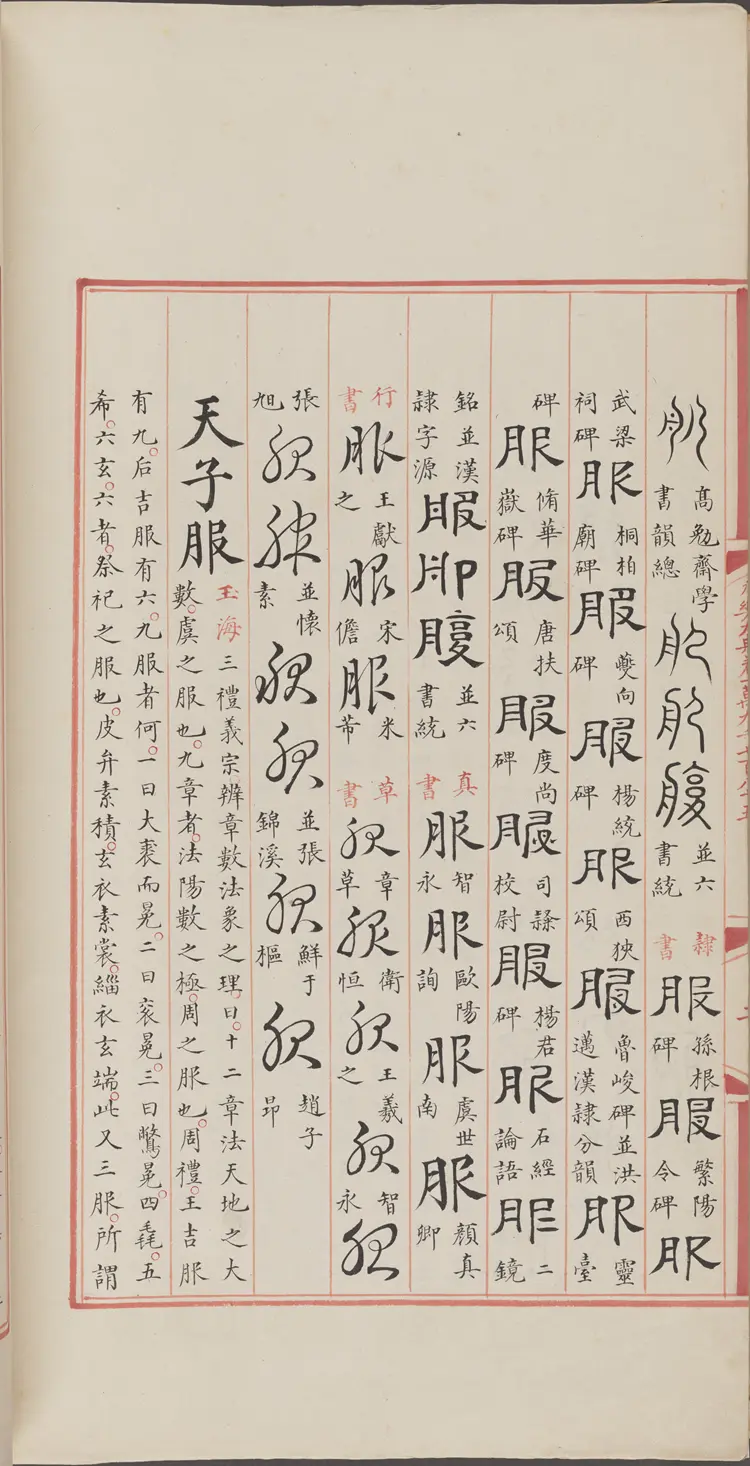 永樂大典卷一萬九千七百八十五
二
服 高勉齋學書韻總 服 服 服 並六書統 隸書 服 孫根碑 服 繁陽令碑 服
武梁祠碑 服 桐柏廟碑 服 夔向碑 服 楊統碑 服 西狹頌 服 魯峻碑並洪邁漢隸分韻 服 靈臺
碑 服 脩華嶽碑 服 唐扶頌 服 度尚碑 服 司隸校尉碑 服 楊君碑 服 石經論語 服 二鏡
銘並漢隸字源 服 服 服 並六書統 真書 服 智永 服 歐陽詢 服 虞世南 服 顏真卿
行書 服 王獻之 服 宋儋 服 米芾 草書 服 章草 服 衛恒 服 王羲之 服 智永 服
張旭 服 服 並懷素 服 服 並張錦溪 服 鮮于樞 服 趙子昂
天子服 玉海 三禮義宗辨章數法象之理。曰。十二章法天地之大
數。虞之服也。九章者。法陽數之極。周之服也。周禮。王吉服
有九。后吉服有六。九服者何。一曰大裘而冕。二曰衮冕。三曰鷩冕。四毳。五
希。六玄。六者。祭祀之服也。皮弁素積。玄衣素裳。緇衣玄端。此又三服。所謂